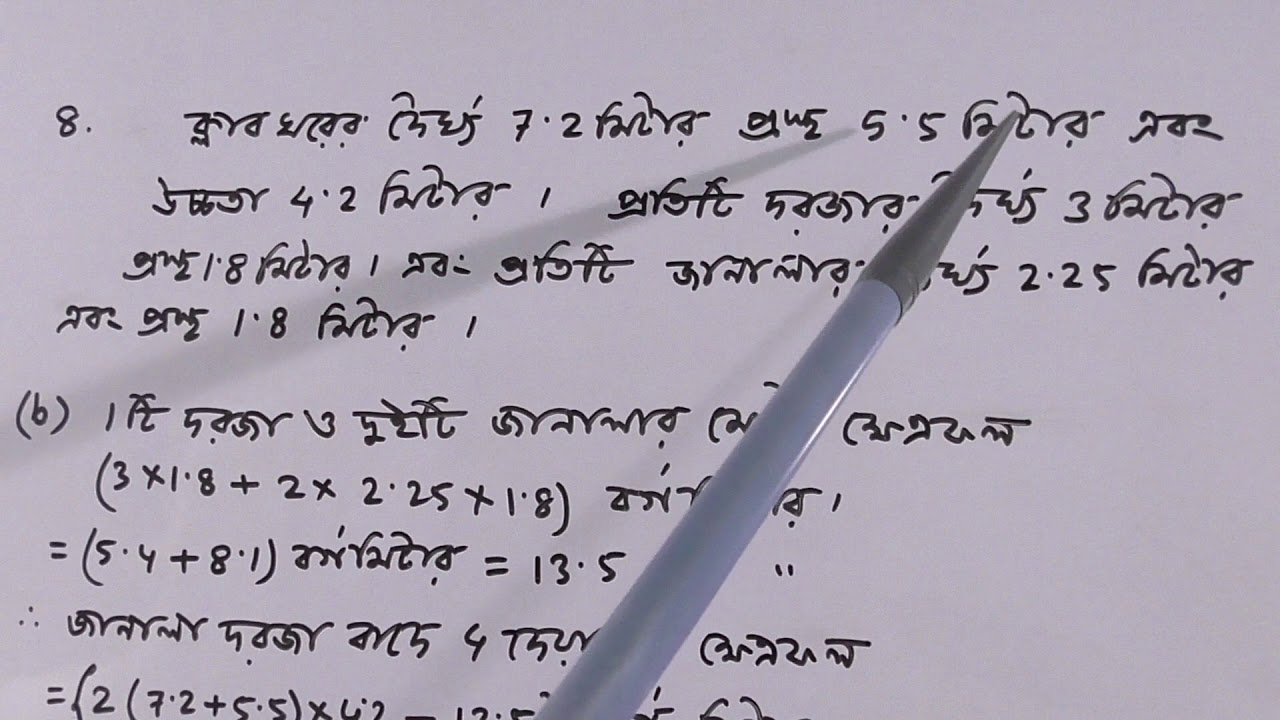 8. ক্লাবঘরের দৈর্ঘ্য 7.2 মিটার প্রস্থ 5.5 মিটার এবং
উচ্চতা 4.2 মিটার । প্রতিটি দরজার দৈর্ঘ্য 3 মিটার
প্রস্থ 1.8 মিটার । এবং প্রতিটি জানালার দৈর্ঘ্য 2.25 মিটার
এবং প্রস্থ 1.8 মিটার ।
(b) 1টি দরজা ও দুইটি জানালার মোট ক্ষেত্রফল
(3 × 1.8 + 2 × 2.25 × 1.8) বর্গমিটার ।
= (5.4 + 8.1) বর্গমিটার = 13.5 "
∴ জানালা দরজা বাদে 4 ক্ষেত্রফল
= {2 (7.2 + 5.5) × 4.2 –